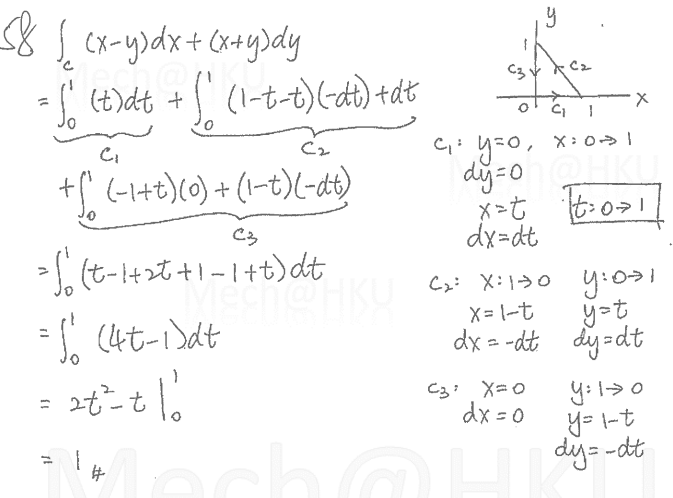 58 ∫_C (x-y)dx+(x+y)dy
= ∫₀¹ (t)dt + ∫₀¹ (1-t-t)(-dt)+dt
C₁ C₂
+ ∫₀¹ (-1+t)(0)+(1-t)(-dt)
C₃
= ∫₀¹ (t-1+2t+1-1+t)dt
= ∫₀¹ (4t-1)dt
= 2t²-t |₀¹
= 1 #
y
1
C₃ C₂
0 C₁ 1 x
C₁: y=0, x:0→1
dy=0
x=t t:0→1
dx=dt
C₂: x:1→0 y:0→1
x=1-t y=t
dx=-dt dy=dt
C₃: x=0 y:1→0
dx=0 y=1-t
dy=-dt
Mech@HKU
Mech@HKU
Mech@HKU
Mech@HKU